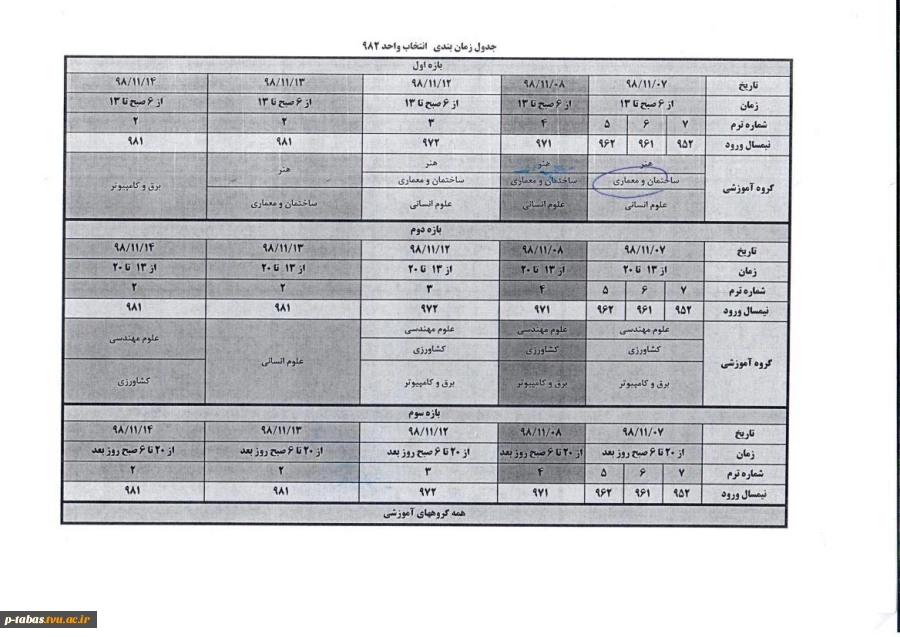 جدول زمان بندی انتخاب واحد ۹۸۲
بازه اول
تاریخ ۹۸/۱۱/۰۷ ۹۸/۱۱/۰۸ ۹۸/۱۱/۱۲ ۹۸/۱۱/۱۳ ۹۸/۱۱/۱۴
زمان از ۶ صبح تا ۱۳ از ۶ صبح تا ۱۳ از ۶ صبح تا ۱۳ از ۶ صبح تا ۱۳ از ۶ صبح تا ۱۳
شماره ترم ۷ ۶ ۵ ۴ ۳ ۲ ۲
نیمسال ورود ۹۵۲ ۹۶۱ ۹۶۲ ۹۷۱ ۹۷۲ ۹۸۱ ۹۸۱
گروه آموزشی
هنر هنر هنر هنر برق و کامپیوتر
ساختمان و معماری ساختمان و معماری ساختمان و معماری
علوم انسانی علوم انسانی علوم انسانی ساختمان و معماری
بازه دوم
تاریخ ۹۸/۱۱/۰۷ ۹۸/۱۱/۰۸ ۹۸/۱۱/۱۲ ۹۸/۱۱/۱۳ ۹۸/۱۱/۱۴
زمان از ۱۳ تا ۲۰ از ۱۳ تا ۲۰ از ۱۳ تا ۲۰ از ۱۳ تا ۲۰ از ۱۳ تا ۲۰
شماره ترم ۷ ۶ ۵ ۴ ۳ ۲ ۲
نیمسال ورود ۹۵۲ ۹۶۱ ۹۶۲ ۹۷۱ ۹۷۲ ۹۸۱ ۹۸۱
گروه آموزشی
علوم مهندسی علوم مهندسی علوم مهندسی علوم انسانی علوم مهندسی
کشاورزی کشاورزی کشاورزی
برق و کامپیوتر برق و کامپیوتر برق و کامپیوتر کشاورزی
بازه سوم
تاریخ ۹۸/۱۱/۰۷ ۹۸/۱۱/۰۸ ۹۸/۱۱/۱۲ ۹۸/۱۱/۱۳ ۹۸/۱۱/۱۴
زمان از ۲۰ تا ۶ صبح روز بعد از ۲۰ تا ۶ صبح روز بعد از ۲۰ تا ۶ صبح روز بعد از ۲۰ تا ۶ صبح روز بعد از ۲۰ تا ۶ صبح روز بعد
شماره ترم ۷ ۶ ۵ ۴ ۳ ۲ ۲
نیمسال ورود ۹۵۲ ۹۶۱ ۹۶۲ ۹۷۱ ۹۷۲ ۹۸۱ ۹۸۱
همه گروههای آموزشی
p-tabas.tvu.ac.ir